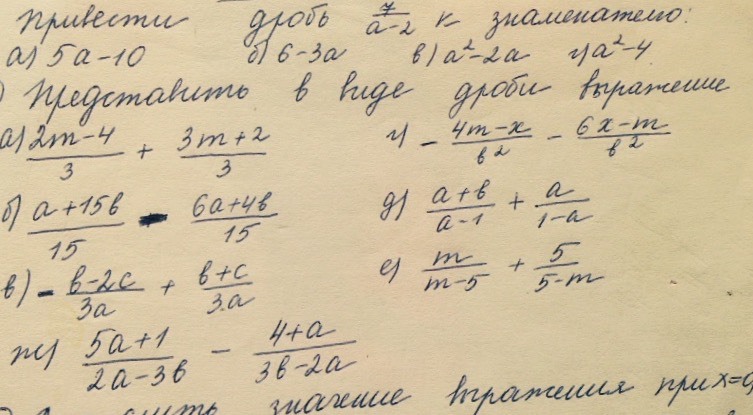 Привести дробь 7/(a-2) к знаменателю:
а) 5a-10 б) 6-3a в) a²-2a г) a²-4
) Представить в виде дроби выражение
а) (2m-4)/3 + (3m+2)/3 г) - (4m-x)/b² - (6x-m)/b²
б) (a+15b)/15 - (6a+4b)/15 д) (a+b)/(a-1) + a/(1-a)
в) - (b-2c)/3a + (b+c)/3a е) m/(m-5) + 5/(5-m)
ж) (5a+1)/(2a-3b) - (4+a)/(3b-2a)
значение выражения при x=0,